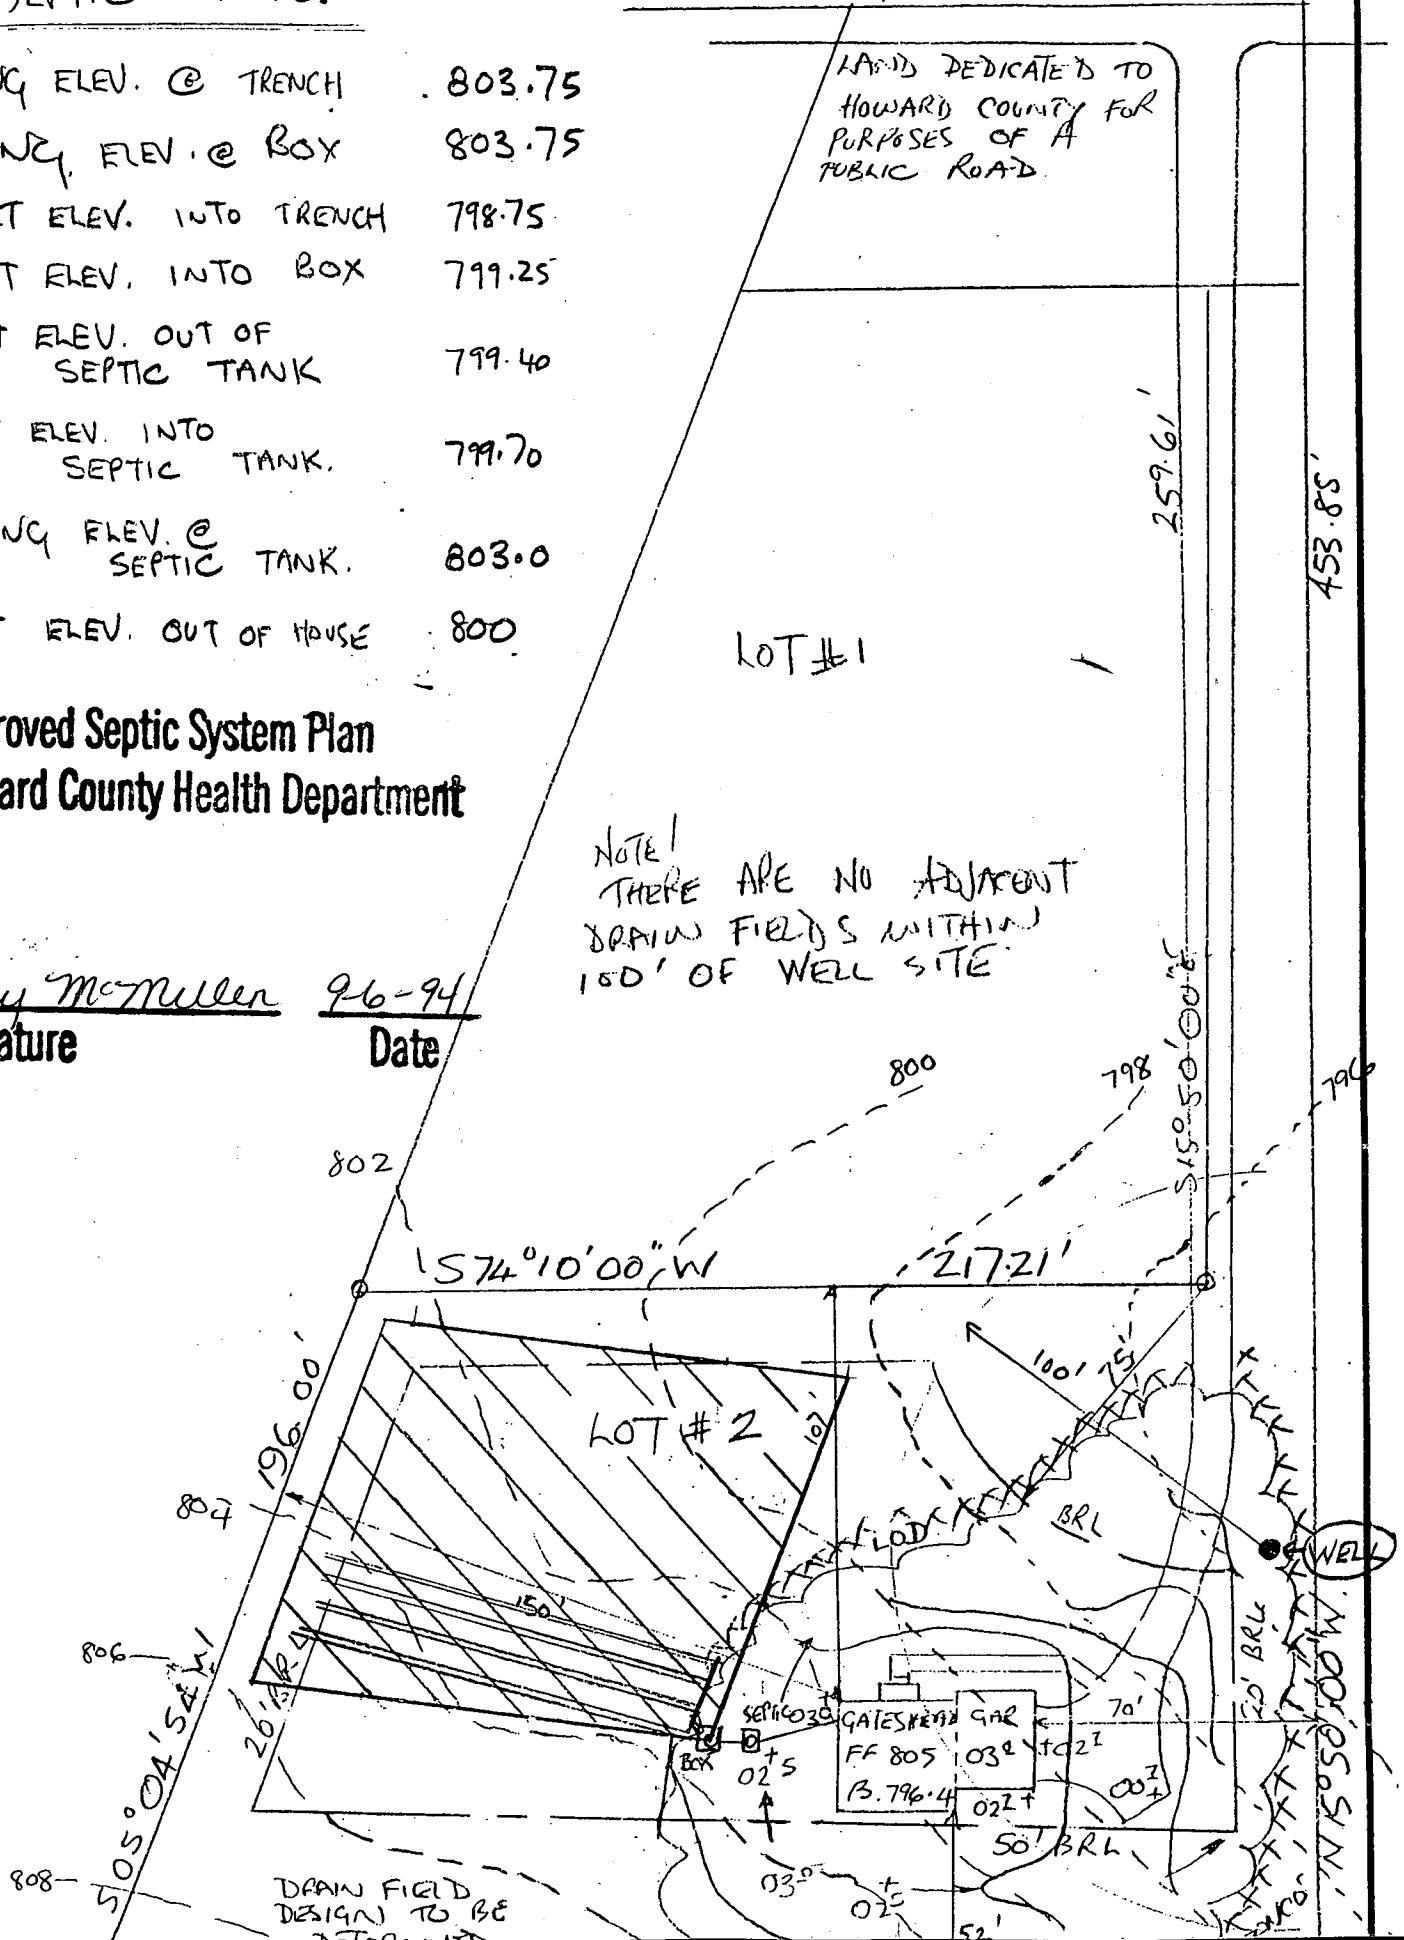 ELEV. @ TRENCH 803.75
ELEV. @ BOX 803.75
ELEV. INTO TRENCH 798.75
ELEV. INTO BOX 799.25
ELEV. OUT OF
SEPTIC TANK 799.40
ELEV. INTO
SEPTIC TANK. 799.70
ELEV. @
SEPTIC TANK. 803.0
ELEV. OUT OF HOUSE 800
roved Septic System Plan
ard County Health Department
McMillen 9-6-94
ature Date
LAND DEDICATED TO
HOWARD COUNTY FOR
PURPOSES OF A
PUBLIC ROAD.
259.61'
453.85'
LOT #1
NOTE!
THERE ARE NO ADJACENT
DRAIN FIELDS WITHIN
100' OF WELL SITE
S15°50'00"E
800
798
796
802
S74°10'00"W 217.21'
196.00'
100' 75'
LOT #2
107'
804
LOD
BRL
WELL
150'
806
20' BRL
50' BRL
SEPTIC
BOX
GATESHEAD
FF 805
B. 796.4
GAR
70'
50' BRL
N15°50'00"W
S05°04'54"W
808
DRAIN FIELD
DESIGN TO BE
52'